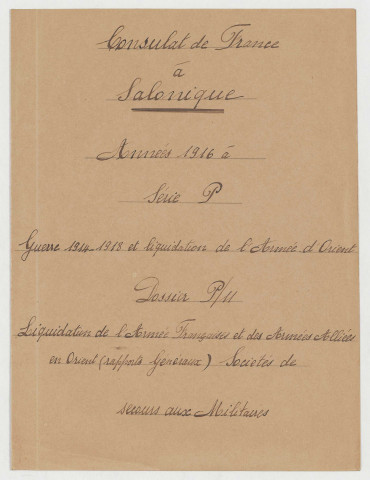 Consulat de France
à
Salonique
Années 1916 à
Série P
Guerre 1914-1918 et liquidation de l'Armée d'Orient
Dossier P/11
Liquidation de l'Armée Françaises et des Armées Alliées
en Orient (rapports Généraux) - Sociétés de
secours aux Militaires